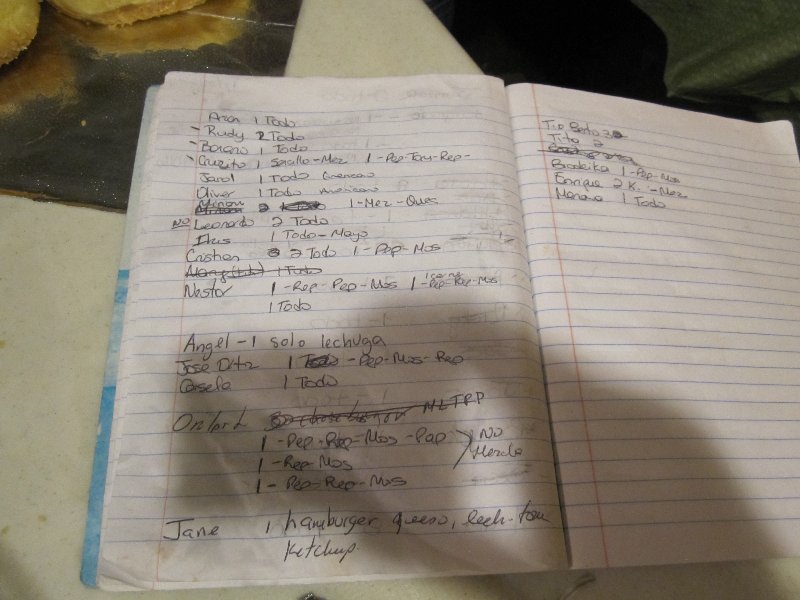 1 Todo
Rudy 2 Todo
1 Todo
1 Sencillo-Mez 1-Pep-Tom-Rep-
1 Todo
Oliver 1 Todo Americano
2 1-Mez-Ques
NO Leonardo 2 Todo
1 Todo-Mayo
Cristian 2 Todo 1-Pep-Mos
1 Todo
Nestor 1-Rep-Pep-Mos 1-Pep-Rep-Mos
1 Todo
Angel-1 solo lechuga
Jose Ortiz 1 Todo-Pep-Mos-Rep
1 Todo
1-Pep-Rep-Mos-Pap
No
1-Rep-Mos
Mezcla
1-Pep-Rep-Mos
Jane 1 hamburger queso, lech-tom
Ketchup
Tio Beto 3
Tito 2
1-Pep-Mos
Enrique 2 K.-Mez
1 Todo